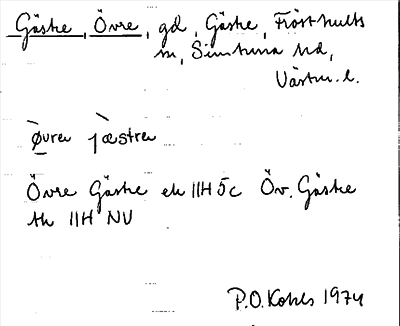 Gästre, Övre, gd, Gästre, Frösthults
sn, Simtuna hd,
Västm. l.
òvrer jæ̀strer
Övre Gästre ek 11H 5c Öv. Gästre
tk 11H NV
P.O. Kohls 1974